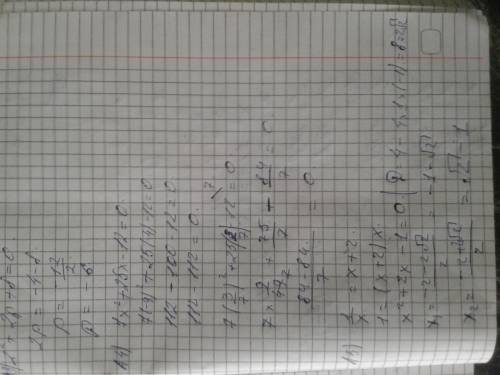 2p = -4-8
p = -12/2
p = -6
7x² + 25x - 12 = 0
7(-4)² + 25(-4) - 12 = 0
112 - 100 - 12 = 0
112 - 112 = 0
7(3/7)² + 25(3/7) - 12 = 0
7 × 9/49 + 75/7 - 84/7 = 0
84-84/7 = 0
1/x = x+2
1 = (x+2)x
x² + 2x - 1 = 0 | D = 4 - 4×1×(-1) = 8 = 2√2
x₁ = -2-2√2/2 = -1-√2
x₂ = -2+2√2/2 = √2-1